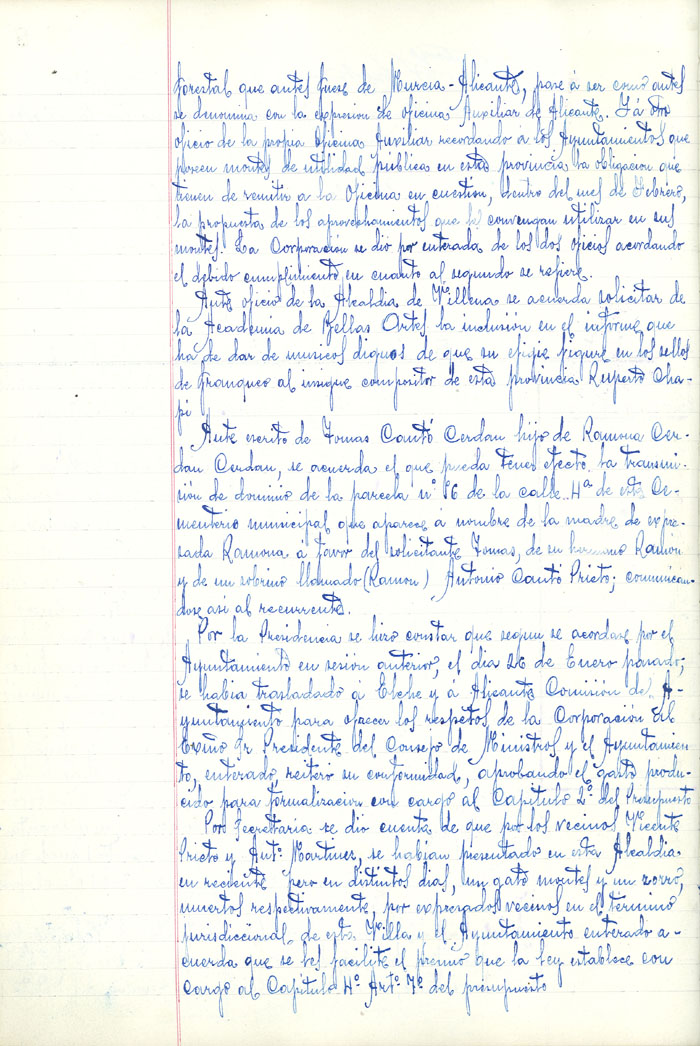 forestal que antes fuese de Murcia-Alicante, pase á ser como antes
se denomina con la expresion de oficina Auxiliar de Alicante. Y á otro
oficio de la propia Oficina Auxiliar recordando a los Ayuntamientos que
poseen montes de utilidad pública en esta provincia la obligacion que
tienen de remitir a la Oficina en cuestion, dentro del mes de Febrero,
la propuesta de los aprovechamientos que les convengan utilizar en sus
montes. La Corporación se dió por enterada de los dos oficios acordando
el debido cumplimiento en cuanto al segundo se refiere.
Ante oficio de la Alcaldia de Villena se acuerda solicitar de
la Academia de Bellas Artes la inclusión en el informe que
ha de dar de musicos dignos de que su efigie figure en los sellos
de franqueo al insigne compositor de esta provincia Ruperto Cha-
pi
Ante escrito de Tomas Cantó Cerdan hijo de Ramona Cer-
dan Cerdan, se acuerda el que pueda tener efecto la transmi-
sión de dominio de la parcela nº 86 de la calle 4ª de este Ce-
menterio municipal que aparece á nombre de la madre de expre-
sada Ramona a favor del solicitante Tomas, de su hermano Ramón
y de un sobrino llamado (Ramon) Antonio Cantó Prieto; comunican-
dose asi al recurrente.
Por la Presidencia se hizo constar que segun se acordase por el
Ayuntamiento en sesión anterior, el dia 26 de Enero pasado;
se habia trasladado á Elche y á Alicante Comisión del A-
yuntamiento para ofrecer los respetos de la Corporasión al
Exmo Sr Presidente del Consejo de Ministros y el Ayuntamien
to, enterado, reiteró su conformidad, aprobando el gasto produ-
cido para formalizacion con cargo al Capitulo 2º del Presupuesto
Por Secretaria se dió cuenta de que por los vecinos Vicente
Prieto y Antº Martinez, se habian presentado en esta Alcaldia
en reciente pero en distintos dias, un gato montes y un zorro,
muertos respectivamente, por expresados vecinos en el termino
jurisdiccional de esta Villa y el Ayuntamiento enterado a-
cuerda que se les facilite el premio que la ley establece con
cargo al Capitulo 4º Artº 7º del presupuesto